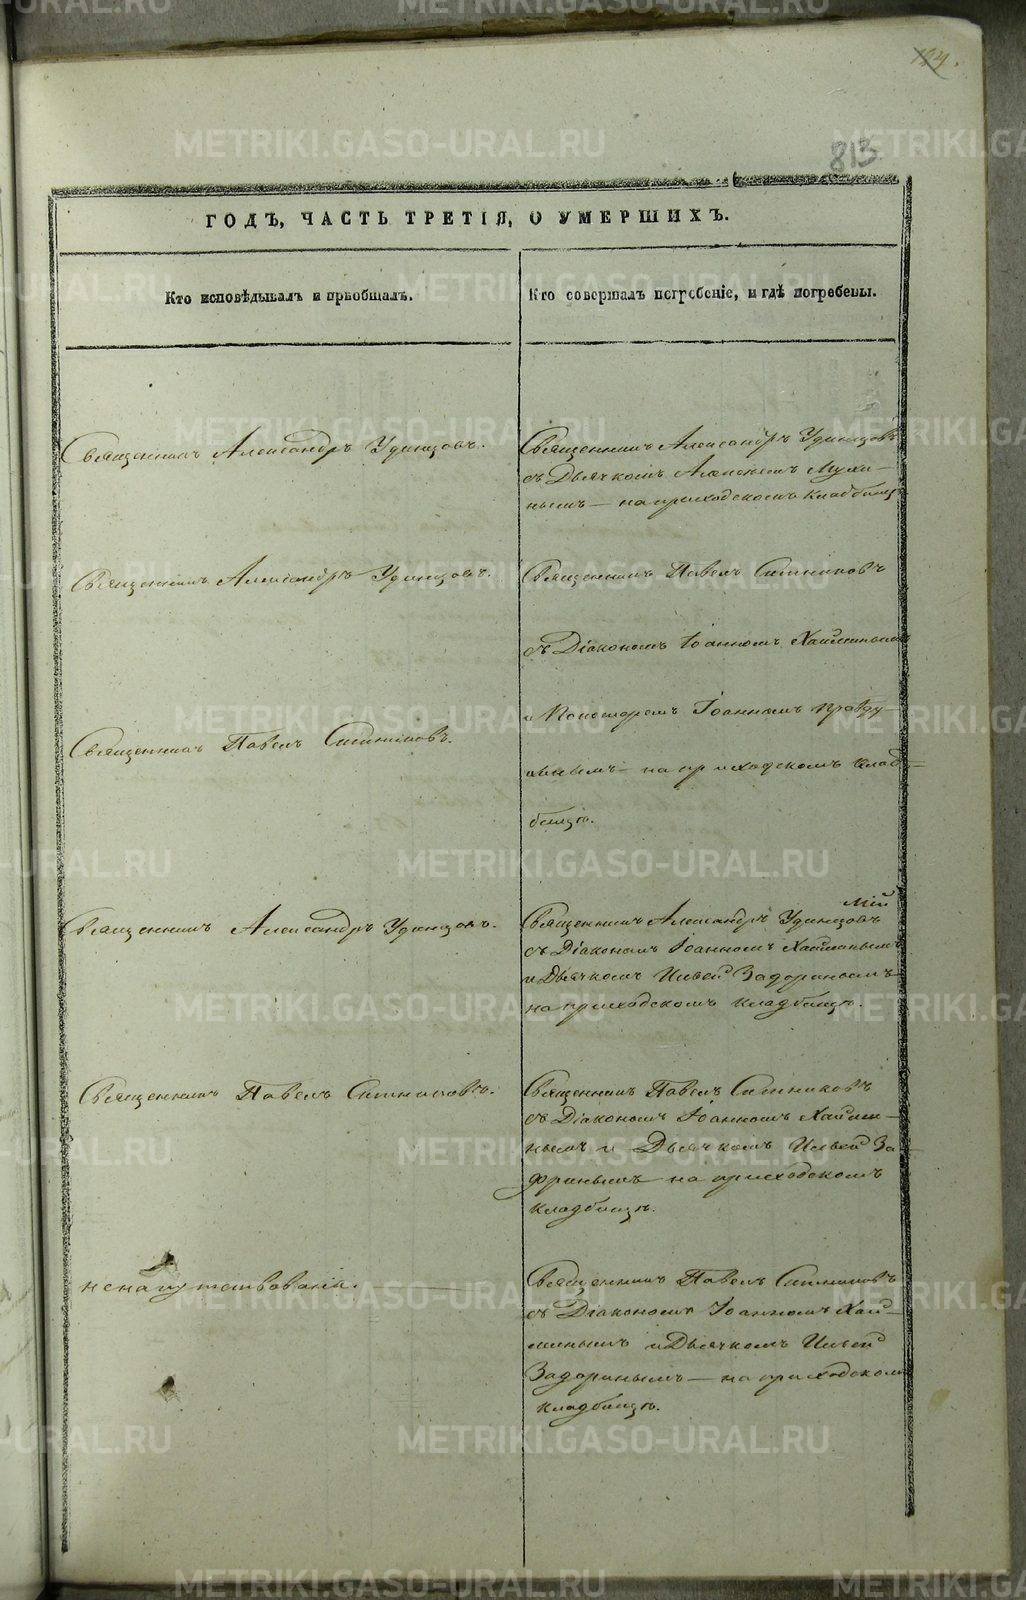 813
ГОДЪ, ЧАСТЬ ТРЕТІЯ, О УМЕРШИХЪ.
Кто исповѣдывалъ и пріобщалъ.
Кто совершалъ погребеніе, и гдѣ погребены.
Священникъ Александръ Удинцовъ.
Священникъ Александръ Удинцовъ
съ Дьячкомъ Алексѣемъ Мухи-
нымъ — на приходскомъ кладбищѣ
Священникъ Александръ Удинцовъ.
Священникъ Павелъ Ситниковъ
съ Діакономъ Іоанномъ
и Пономаремъ Іоанномъ
на приходскомъ клад-
бищѣ.
Священникъ Павелъ Ситниковъ.
Священникъ Александръ Удинцовъ.
Священникъ Александръ Удинцовъ
съ Діакономъ Іоанномъ
и Дьячкомъ Ильей Задоринымъ
на приходскомъ кладбищѣ.
Священникъ Павелъ Ситниковъ.
Священникъ Павелъ Ситниковъ
съ Діакономъ Іоанномъ
нымъ и Дьячкомъ Ильей За-
доринымъ на приходскомъ
кладбищѣ.
не напутствованъ.
Священникъ Павелъ Ситниковъ
съ Діакономъ Іоанномъ
и Дьячкомъ Ильей
Задоринымъ — на приходскомъ
кладбищѣ.
METRIKI.GASO-URAL.RU